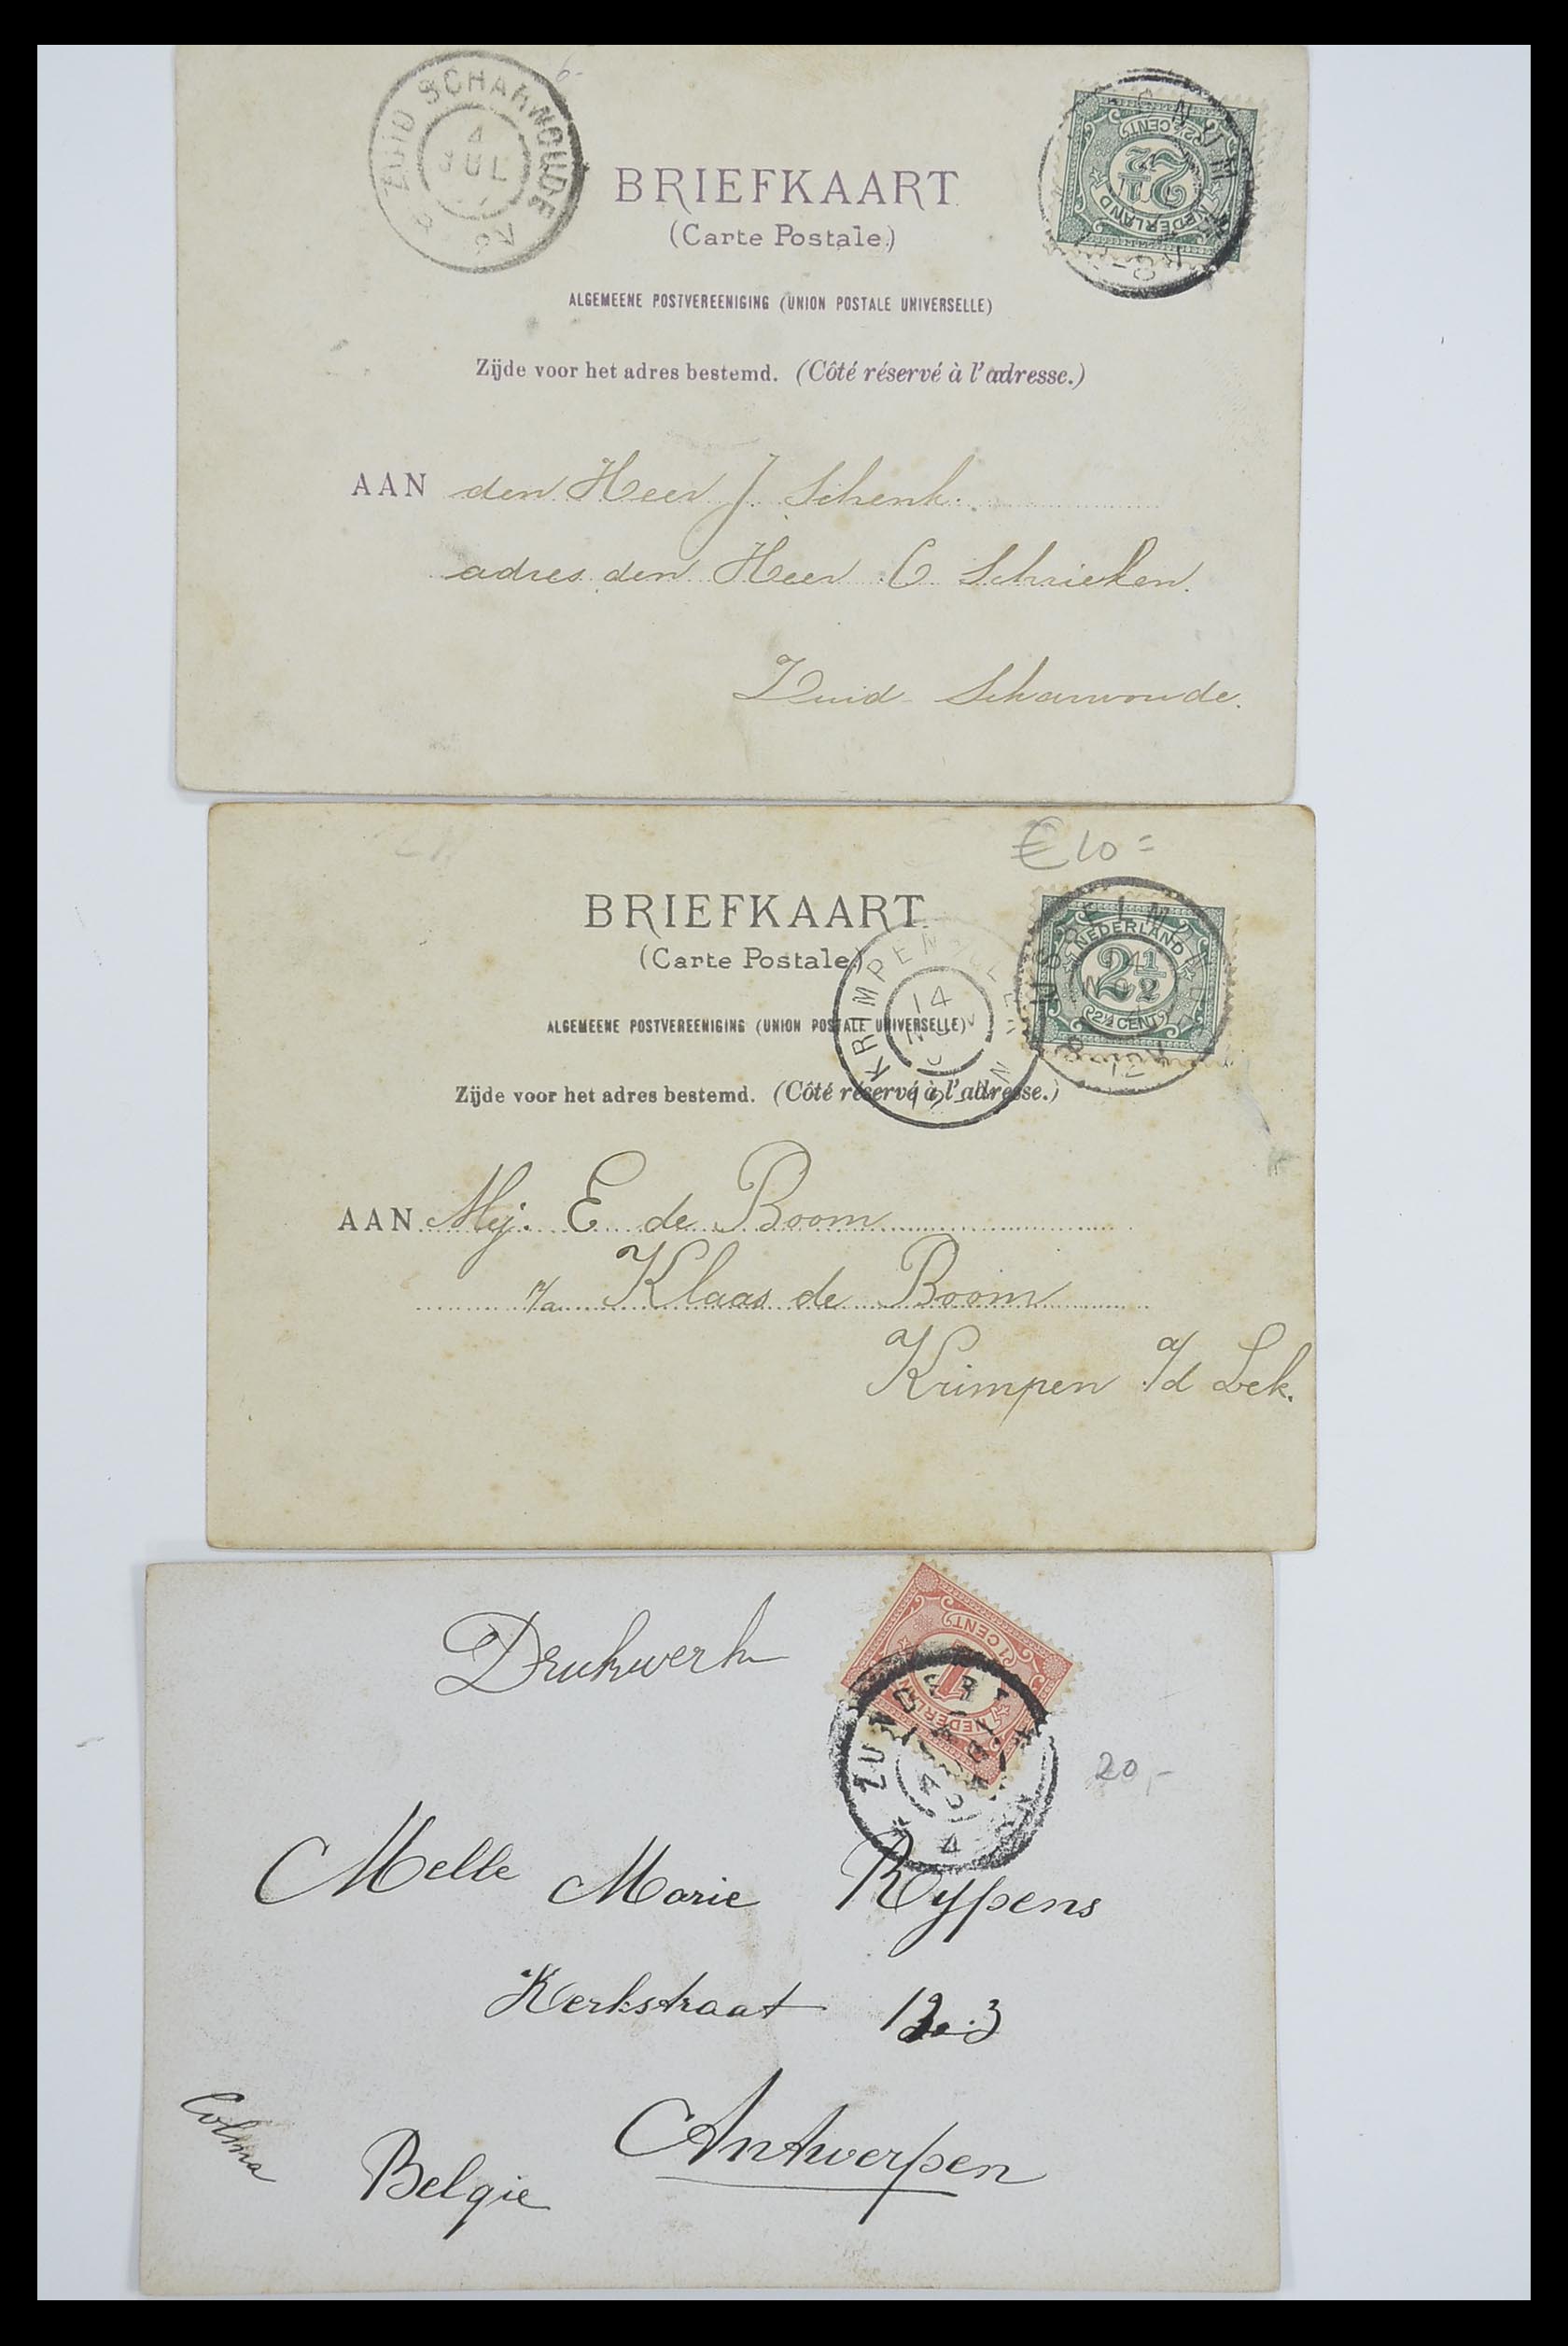 6-
ZUID SCHARWOUDE
4
JUL
2½ CENT
2½
NEDERLAND
BRIEFKAART
(Carte Postale.)
ALGEMEENE POSTVEREENIGING (UNION POSTALE UNIVERSELLE)
Zijde voor het adres bestemd. (Côté réservé à l'adresse.)
AAN den Heer J. Schenk.
adres den Heer C Schrieken.
Zuid Scharwoude.
€10=
BRIEFKAART.
(Carte Postale)
NEDERLAND
2½
2½ CENT
KRIMPEN
14
NOV
ALGEMEENE POSTVEREENIGING (UNION POSTALE UNIVERSELLE)
Zijde voor het adres bestemd. (Côté réservé à l'adresse.)
AAN Mej. E de Boom
p/a Klaas de Boom
Krimpen a/d Lek.
Drukwerk
1 CENT
1
ZUNDERT
4
20,-
Melle Marie Rypens
Kerkstraat
Antwerpen
Belgie